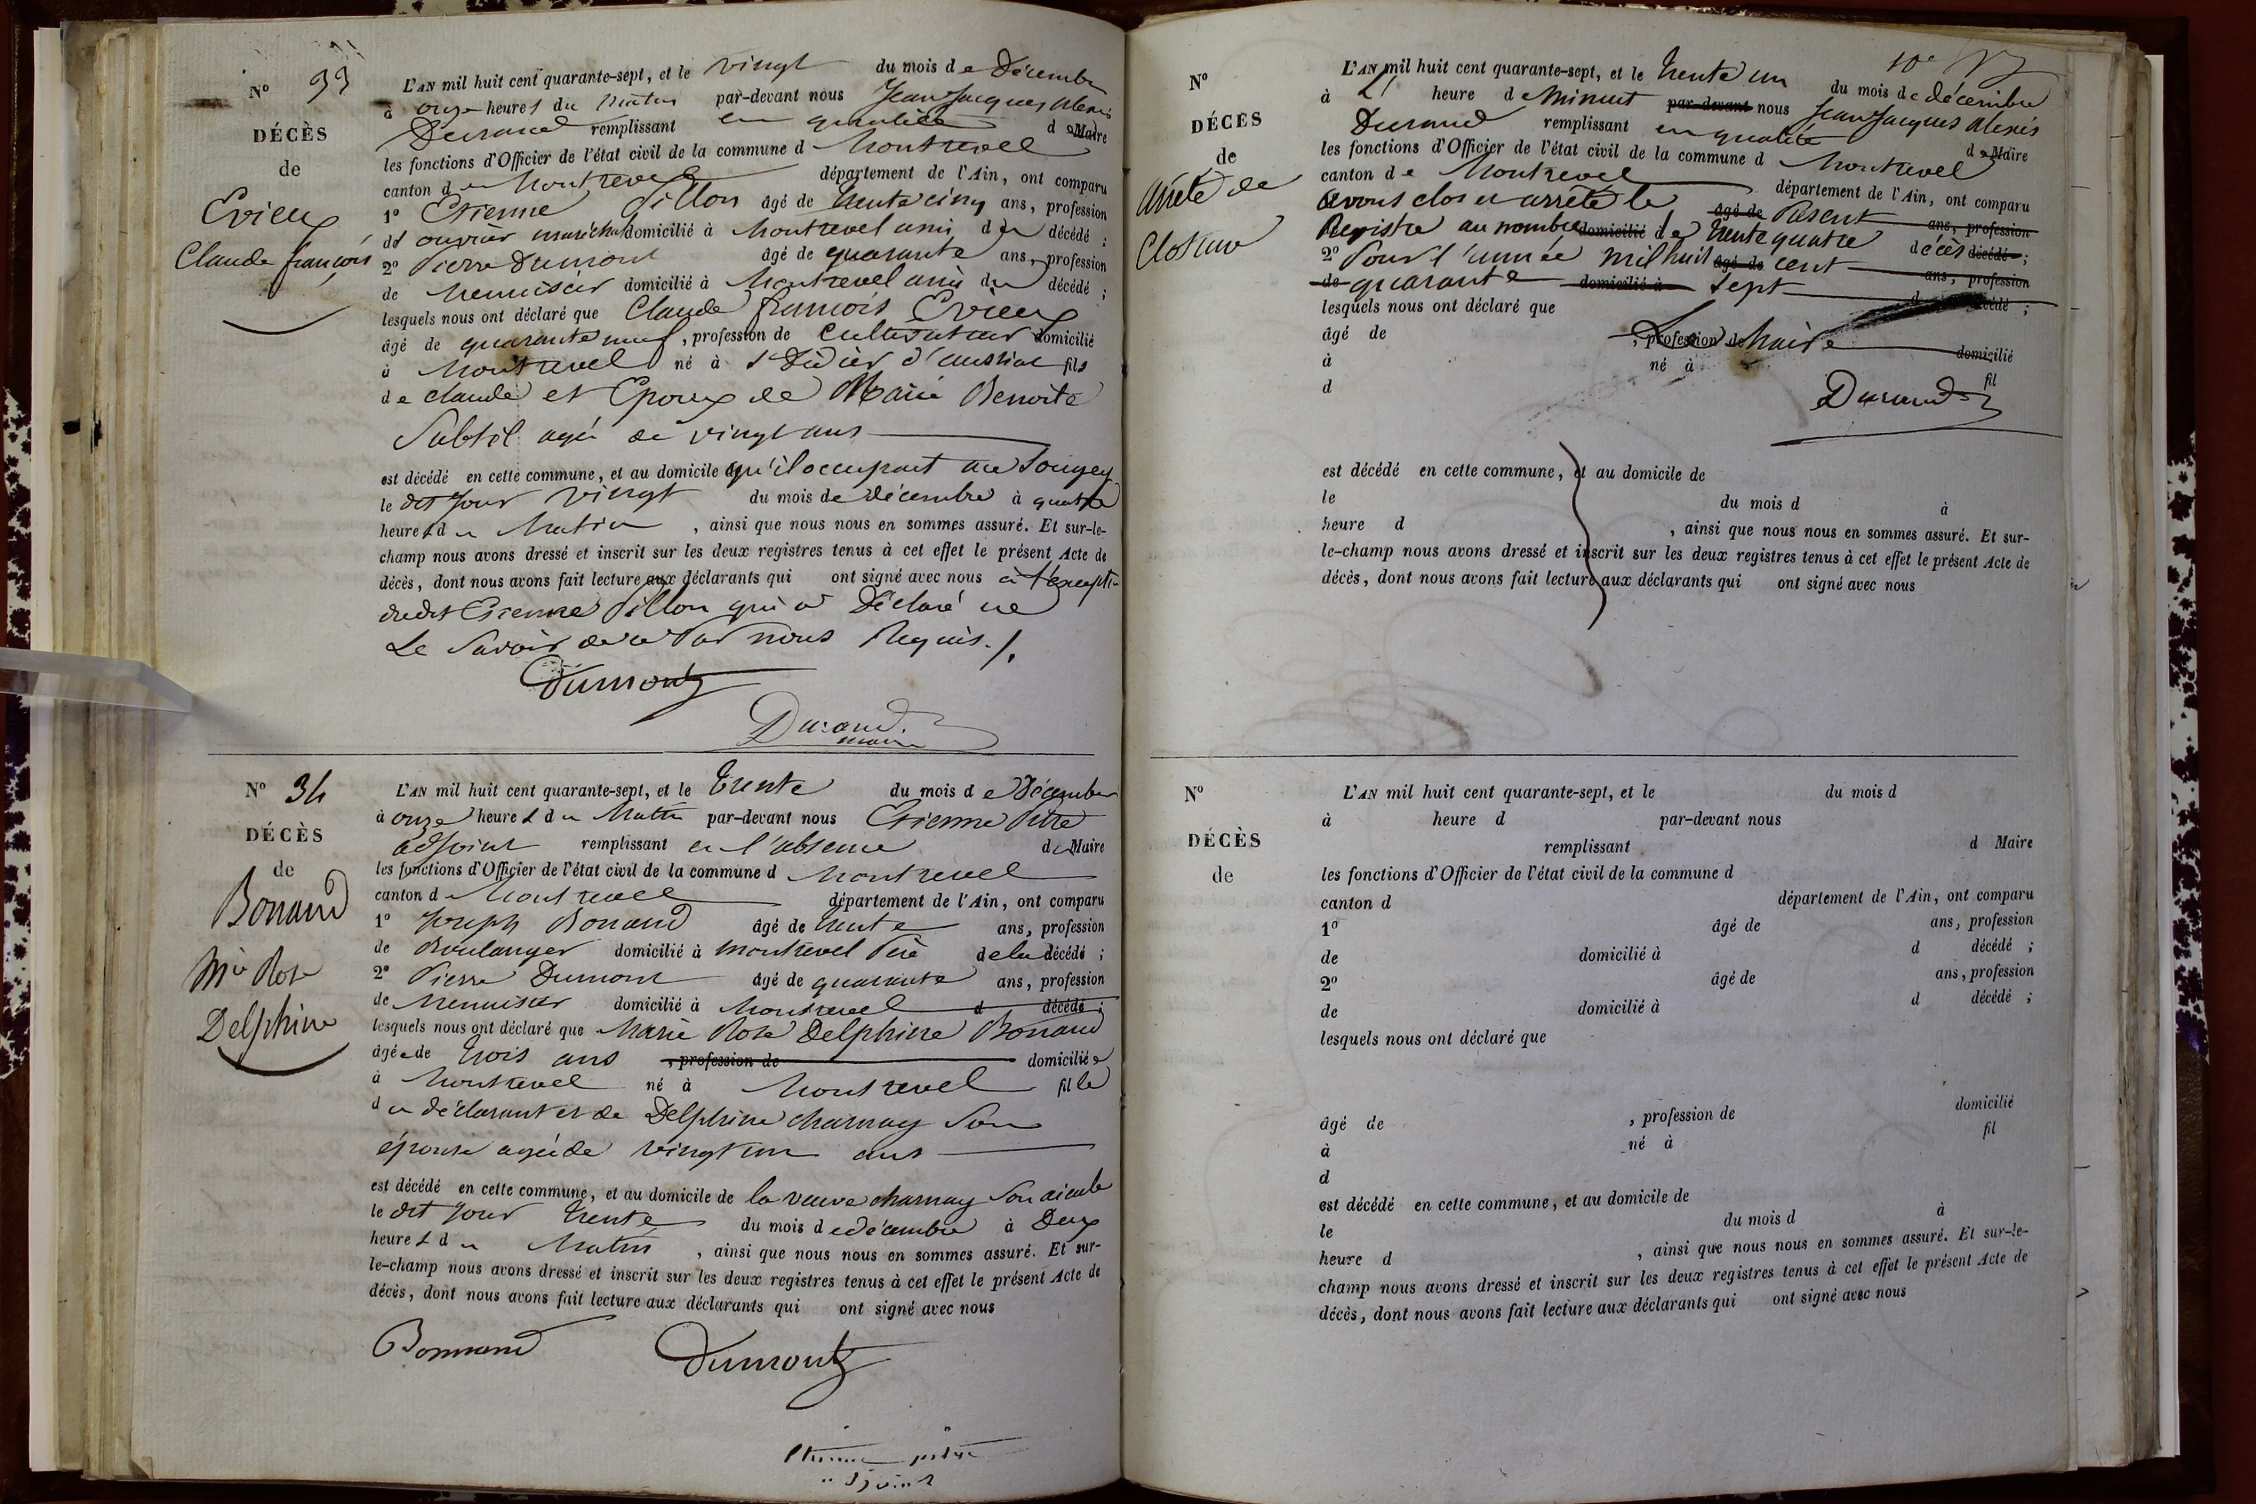 N° 33
DÉCÈS
de
Evieux
Claude françois
L'AN mil huit cent quarante-sept, et le vingt du mois de Décembre
à onze heures du matin par-devant nous Jean Jacques Alexis
Durand remplissant en qualité de Maire
les fonctions d'Officier de l'état civil de la commune d Montrevel
canton de Montrevel département de l'Ain, ont comparu
1° Etienne Pillon âgé de trente cinq ans, profession
d ouvrier maréchal domicilié à Montrevel ami du décédé ;
2° Pierre Dumont âgé de quarante ans, profession
de Menuisier domicilié à Montrevel ami du décédé ;
lesquels nous ont déclaré que Claude françois Evieux
âgé de quarante neuf, profession de Cultivateur domicilié
à Montrevel né à St Didier d'aussiat fils
de claude et Epoux de Marie Benoite
Subtil agée de vingt ans
est décédé en cette commune, et au domicile qu'il occupait au Sougey
le dit jour vingt du mois de décembre à quatre
heures du Matin, ainsi que nous nous en sommes assuré. Et sur-le-
champ nous avons dressé et inscrit sur les deux registres tenus à cet effet le présent Acte de
décès, dont nous avons fait lecture aux déclarants qui ont signé avec nous à l'exception
dudit Etienne Pillon qui a Déclaré ne
Le Savoir de ce Par nous Requis ./.
Dumont
Durand
maire
N° 34
DÉCÈS
de
Bonand
Mie Rose
Delphine
L'AN mil huit cent quarante-sept, et le trente du mois de Décembre
à onze heures du Matin par-devant nous Etienne Pitre
adjoint remplissant en l'absence du Maire
les fonctions d'Officier de l'état civil de la commune d Montrevel
canton d Montrevel département de l'Ain, ont comparu
1° Joseph Bonand âgé de trente ans, profession
de Boulanger domicilié à Montrevel Père de la décédé ;
2° Pierre Dumont âgé de quarante ans, profession
de Menuisier domicilié à Montrevel d décédé ;
lesquels nous ont déclaré que Marie Rose Delphine Bonand
âgée de trois ans , profession de domiciliée
à Montrevel né à Montrevel fille
du déclarant et de Delphine charnay Son
épouse agée de vingt un ans
est décédé en cette commune, et au domicile de la veuve charnay Son aieule
le dit jour trente du mois de décembre à Deux
heures du Matin, ainsi que nous nous en sommes assuré. Et sur-
le-champ nous avons dressé et inscrit sur les deux registres tenus à cet effet le présent Acte de
décès, dont nous avons fait lecture aux déclarants qui ont signé avec nous
Bonnand Dumont
Etienne pitre
adjoint
N°
DÉCÈS
de
Arrêté de
Cloture
L'AN mil huit cent quarante-sept, et le trente un du mois de décembre
à heure de Minuit par-devant nous Jean Jacques Alexis
Durand remplissant en qualité de Maire
les fonctions d'Officier de l'état civil de la commune d Montrevel
canton de Montrevel département de l'Ain, ont comparu
avons clos et arrêté le âgé de Présent ans, profession
Registre au nombre domicilié de trente quatre décès décédé ;
2° Pour l'année mil huit âgé de cent ans, profession
de quarante domicilié à sept d décédé ;
lesquels nous ont déclaré que
âgé de , profession de Le Maire domicilié
à né à fil
d Durand
est décédé en cette commune, et au domicile de
le du mois d à
heure d , ainsi que nous nous en sommes assuré. Et sur-
le-champ nous avons dressé et inscrit sur les deux registres tenus à cet effet le présent Acte de
décès, dont nous avons fait lecture aux déclarants qui ont signé avec nous
N°
DÉCÈS
de
L'AN mil huit cent quarante-sept, et le du mois d
à heure d par-devant nous
remplissant d Maire
les fonctions d'Officier de l'état civil de la commune d
canton d département de l'Ain, ont comparu
1° âgé de ans, profession
de domicilié à d décédé ;
2° âgé de ans, profession
de domicilié à d décédé ;
lesquels nous ont déclaré que
âgé de , profession de domicilié
à né à fil
d
est décédé en cette commune, et au domicile de
le du mois d à
heure d , ainsi que nous nous en sommes assuré. Et sur-le-
champ nous avons dressé et inscrit sur les deux registres tenus à cet effet le présent Acte de
décès, dont nous avons fait lecture aux déclarants qui ont signé avec nous